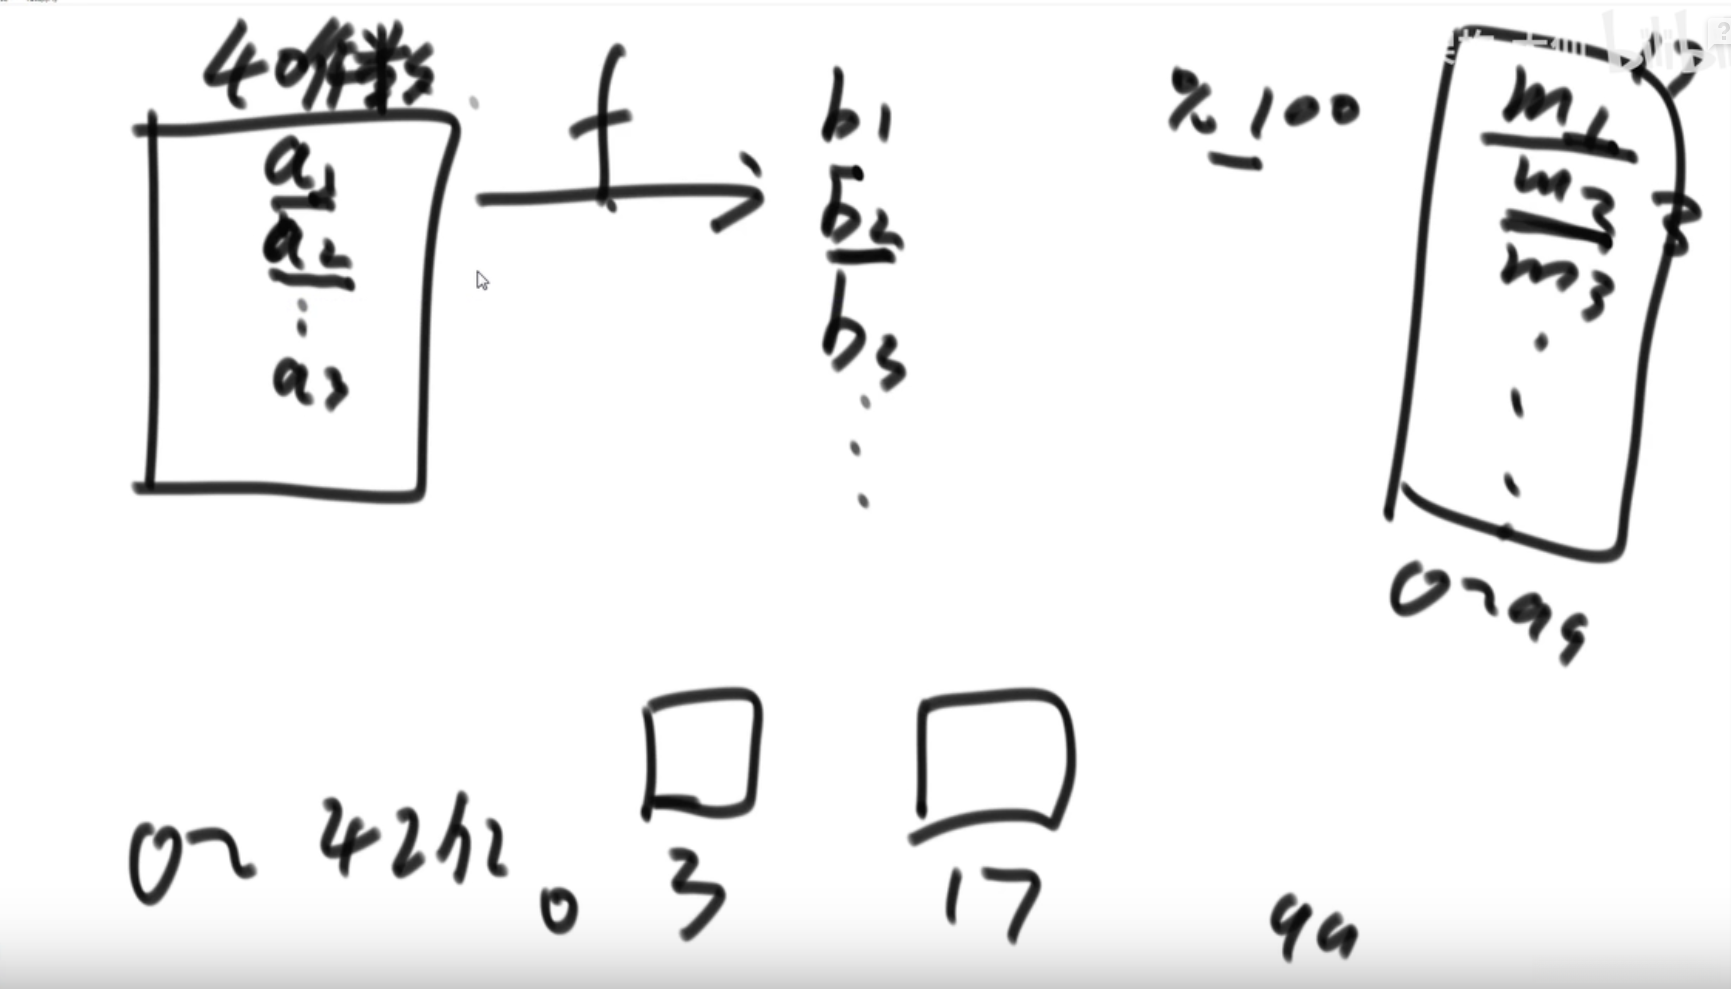 40亿
f
a1
a2
a3
b1
b2
b3
% 100
m1
m2
m3
0~99
0~42亿
0
3
17
99